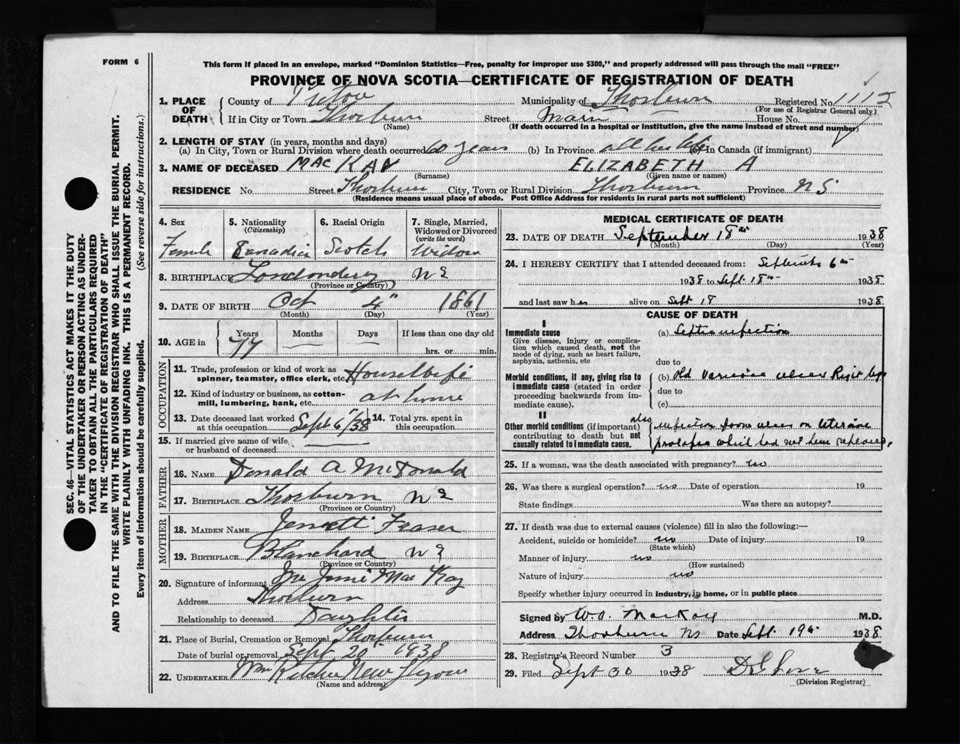 FORM 6
This form if placed in an envelope, marked "Dominion Statistics—Free, penalty for improper use $300," and properly addressed will pass through the mail "FREE"
PROVINCE OF NOVA SCOTIA—CERTIFICATE OF REGISTRATION OF DEATH
1. PLACE OF DEATH
County of Pictou Municipality of Thorburn Registered No. 1112
(For use of Registrar General only.)
If in City or Town Thorburn Street Main House No.
(Name) (If death occurred in a hospital or institution, give the name instead of street and number)
2. LENGTH OF STAY (in years, months and days)
(a) In City, Town or Rural Division where death occurred 60 years (b) In Province all her life (c) in Canada (if immigrant)
3. NAME OF DECEASED MAC KAY ELIZABETH A
(Surname) (Given name or names)
RESIDENCE No. Street Thorburn City, Town or Rural Division Thorburn Province N S
(Residence means usual place of abode. Post Office Address for residents in rural parts not sufficient)
4. Sex 5. Nationality (Citizenship) 6. Racial Origin 7. Single, Married, Widowed or Divorced (write the word)
Female Canadian Scotch Widow
8. BIRTHPLACE Londonderry N S
(Province or Country)
9. DATE OF BIRTH Oct 4" 1861
(Month) (Day) (Year)
10. AGE in Years Months Days If less than one day old
77 hrs. or min.
OCCUPATION
11. Trade, profession or kind of work as spinner, teamster, office clerk, etc. Housewife
12. Kind of industry or business, as cotton-mill, lumbering, bank, etc. at home
13. Date deceased last worked at this occupation Sept 6/38 14. Total yrs. spent in this occupation
15. If married give name of wife or husband of deceased
FATHER
16. NAME Donald A McDonald
17. BIRTHPLACE Thorburn N S
(Province or Country)
MOTHER
18. MAIDEN NAME Fraser
19. BIRTHPLACE Blanchard N S
(Province or Country)
20. Signature of informant Mac Kay
Address Thorburn
Relationship to deceased Daughter
21. Place of Burial, Cremation or Removal Thorburn
Date of burial or removal Sept 20" 1938
22. UNDERTAKER Wm New Glasgow
(Name and address)
MEDICAL CERTIFICATE OF DEATH
23. DATE OF DEATH September 18th 1938
(Month) (Day) (Year)
24. I HEREBY CERTIFY that I attended deceased from: September 6th
1938 to Sept 18th 1938
and last saw her alive on Sept 18 1938
CAUSE OF DEATH
I
Immediate cause (a) Septic infection
Give disease, injury or complication which caused death, not the mode of dying, such as heart failure, asphyxia, asthenia, etc
due to
Morbid conditions, if any, giving rise to immediate cause (stated in order proceeding backwards from immediate cause). (b) Old Varicose ulcer Right leg
due to
(c)
II
Other morbid conditions (if important) contributing to death but not causally related to immediate cause. also infection from ulcer on uterine
prolapse which had not been replaced
25. If a woman, was the death associated with pregnancy? no
26. Was there a surgical operation? no Date of operation 19
State findings Was there an autopsy?
27. If death was due to external causes (violence) fill in also the following:—
Accident, suicide or homicide? no Date of injury 19
(State which)
Manner of injury no
(How sustained)
Nature of injury no
Specify whether injury occurred in industry, in home, or in public place
Signed by W.A. MacKay M.D.
Address Thorburn NS Date Sept. 19th 1938
28. Registrar's Record Number 3
29. Filed Sept 30 1938
(Division Registrar)
SEC. 46—VITAL STATISTICS ACT MAKES IT THE DUTY
OF THE UNDERTAKER OR PERSON ACTING AS UNDER-
TAKER TO OBTAIN ALL THE PARTICULARS REQUIRED
IN THE "CERTIFICATE OF REGISTRATION OF DEATH"
AND TO FILE THE SAME WITH THE DIVISION REGISTRAR WHO SHALL ISSUE THE BURIAL PERMIT.
WRITE PLAINLY WITH UNFADING INK. THIS IS A PERMANENT RECORD.
Every item of information should be carefully supplied. (See reverse side for instructions.)